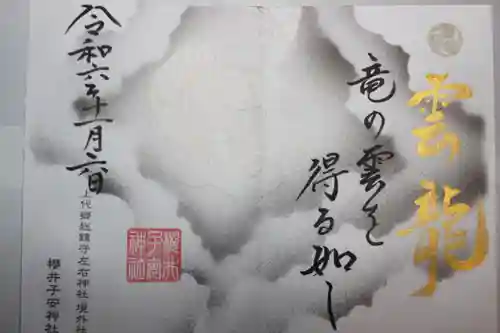 雲龍
竜の雲を
得る如し
令和六年十一月六日
上代郷総鎮守左右神社境外社
櫻井子安神社
櫻井
子安
神社